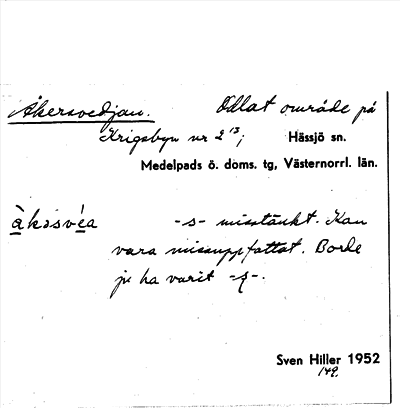 Åkersvedjan. Odlat område på
Krigsbyn nr 2¹³; Hässjö sn.
Medelpads ö. doms. tg, Västernorrl. län.
àkəsvéa -s- misstänkt. Kan
vara missuppfattat. Borde
ju ha varit -ʂ-.
Sven Hiller 1952
149.